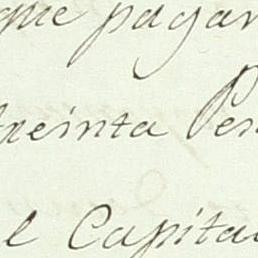 que pagar
treinta Pes
el Capita